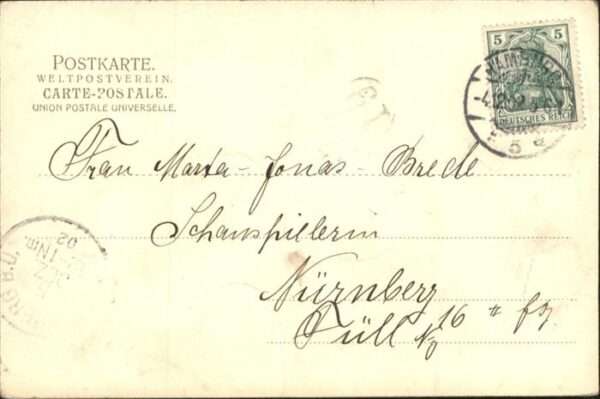 POSTKARTE.
WELTPOSTVEREIN.
CARTE-POSTALE.
UNION POSTALE UNIVERSELLE.
5 5
DEUTSCHES REICH
HAMBURG
5
Frau Marta-Jonas-Brede
Schauspielerin
Nürnberg
Füll № 16
02